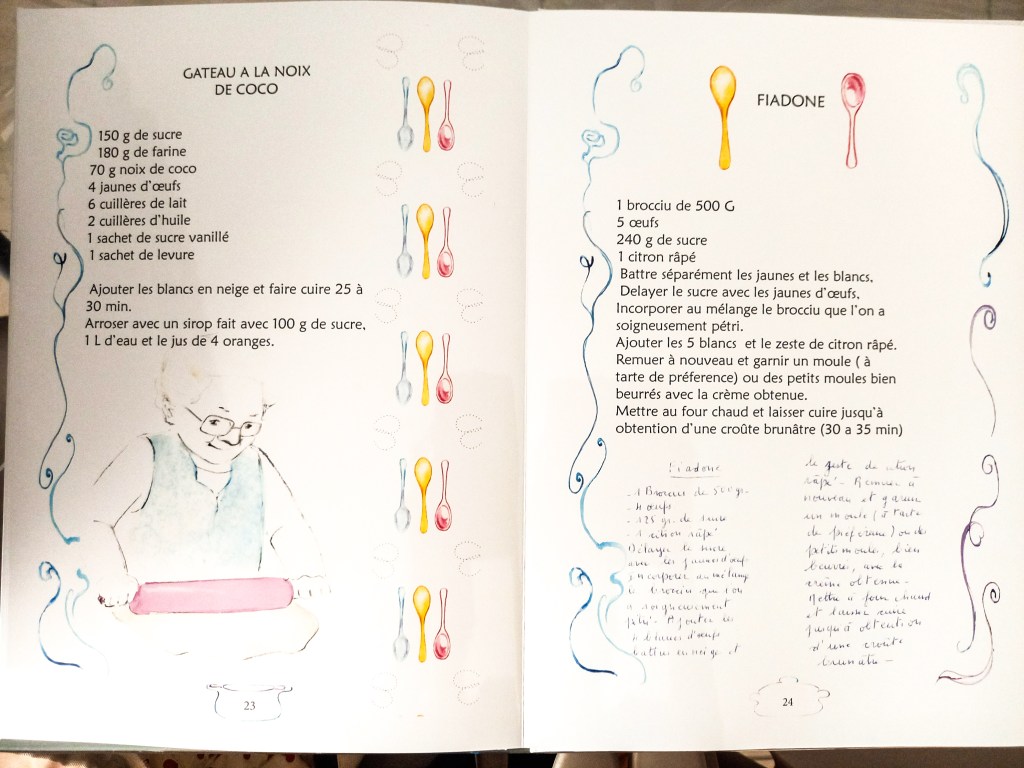 GATEAU A LA NOIX
DE COCO
150 g de sucre
180 g de farine
70 g noix de coco
4 jaunes d'œufs
6 cuillères de lait
2 cuillères d'huile
1 sachet de sucre vanillé
1 sachet de levure
Ajouter les blancs en neige et faire cuire 25 à
30 min.
Arroser avec un sirop fait avec 100 g de sucre,
1 L d'eau et le jus de 4 oranges.
23
FIADONE
1 brocciu de 500 G
5 œufs
240 g de sucre
1 citron râpé
Battre séparément les jaunes et les blancs,
Delayer le sucre avec les jaunes d'œufs,
Incorporer au mélange le brocciu que l'on a
soigneusement pétri.
Ajouter les 5 blancs et le zeste de citron râpé.
Remuer à nouveau et garnir un moule ( à
tarte de préference) ou des petits moules bien
beurrés avec la crème obtenue.
Mettre au four chaud et laisser cuire jusqu'à
obtention d'une croûte brunâtre (30 a 35 min)
Fiadone
- 1 Brocciu de 500 gr.
- 4 œufs
- 125 gr. de sucre
- 1 citron râpé
Délayer le sucre
avec les jaunes d'œufs
incorporer au mélange
le brocciu que l'on
a soigneusement
pétri - Ajouter les
4 blancs d'œufs
battus en neige et
le zeste de citron
râpé - Remuer à
nouveau et garnir
un moule (à tarte
de préférence) ou de
petits moules, bien
beurrés, avec la
crème obtenue -
Mettre à four chaud
et laisser cuire
jusqu'à obtention
d'une croûte
brunâtre -
24